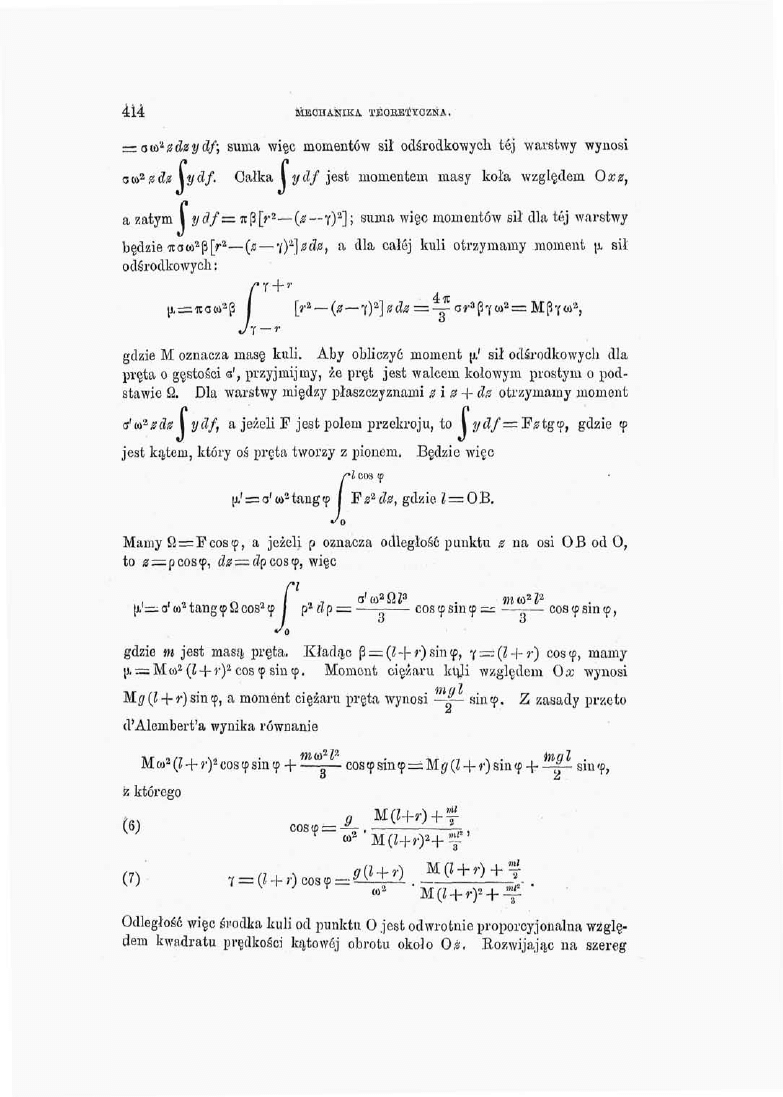 414 MECHANIKA TEORETYCZNA.
= σω²zdzydf; suma więc momentów sił odśrodkowych téj warstwy wynosi
σω²zdz∫ydf. Całka ∫ydf jest momentem masy koła względem Oxz,
a zatym ∫ydf = πβ[r²—(z—γ)²]; suma więc momentów sił dla téj warstwy
będzie πσω²β[r²—(z—γ)²]zdz, a dla całéj kuli otrzymamy moment μ sił
odśrodkowych:
μ = πσω²β ∫_{γ—r}^{γ+r} [r²—(z—γ)²]zdz = 4π/3 σr³βγω² = Mβγω²,
gdzie M oznacza masę kuli. Aby obliczyć moment μ' sił odśrodkowych dla
pręta o gęstości σ', przyjmijmy, że pręt jest walcem kołowym prostym o pod-
stawie Ω. Dla warstwy między płaszczyznami z i z + dz otrzymamy moment
σ'ω²zdz∫ydf, a jeżeli F jest polem przekroju, to ∫ydf = Fztgφ, gdzie φ
jest kątem, który oś pręta tworzy z pionem. Będzie więc
μ' = σ'ω²tangφ ∫_0^{l cos φ} Fz²dz, gdzie l = OB.
Mamy Ω = Fcosφ, a jeżeli ρ oznacza odległość punktu z na osi OB od O,
to z = ρcosφ, dz = dρcosφ, więc
μ' = σ'ω²tangφΩcos²φ ∫_0^l ρ²dρ = σ'ω²Ωl³/3 cosφsinφ = mω²l²/3 cosφsinφ,
gdzie m jest masą pręta. Kładąc β = (l+r)sinφ, γ = (l+r) cosφ, mamy
μ = Mω²(l+r)²cosφsinφ. Moment ciężaru kuli względem Ox wynosi
Mg(l+r)sinφ, a moment ciężaru pręta wynosi mgl/2 sinφ. Z zasady przeto
d'Alembert'a wynika równanie
Mω²(l+r)²cosφsinφ + mω²l²/3 cosφsinφ = Mg(l+r)sinφ + mgl/2 sinφ,
z którego
(6) cosφ = g/ω² . (M(l+r) + ml/2)/(M(l+r)² + ml²/3),
(7) γ = (l+r)cosφ = g(l+r)/ω² . (M(l+r) + ml/2)/(M(l+r)² + ml²/3).
Odległość więc środka kuli od punktu O jest odwrotnie proporcyjonalna wzglę-
dem kwadratu prędkości kątowéj obrotu około Oz. Rozwijając na szereg